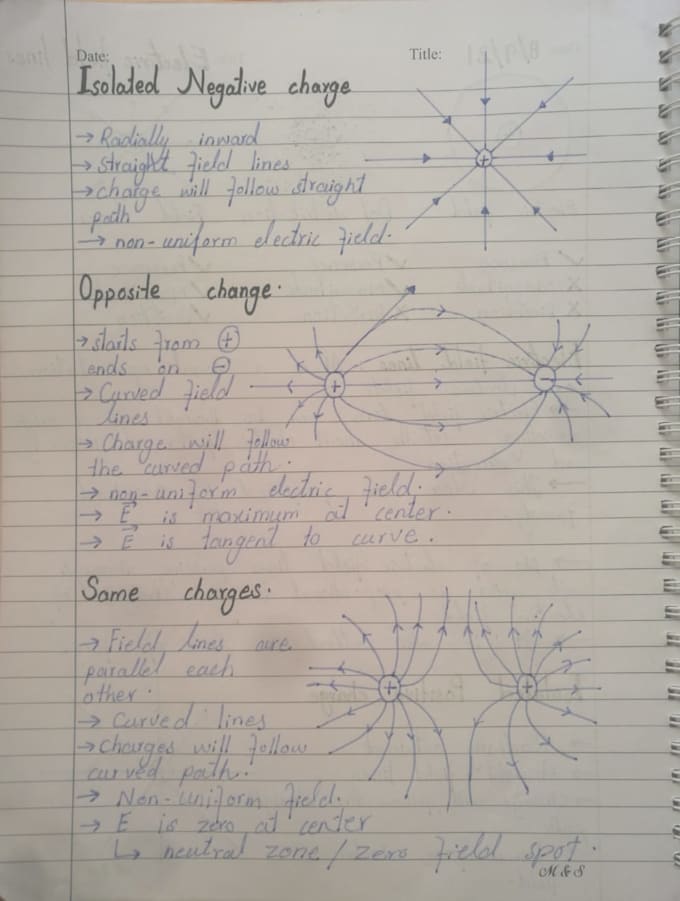 Date:
Title:
Isolated Negative charge
→ Radially inward
→ straight field lines
→ charge will follow straight
path
→ non-uniform electric field.
+
Opposite change.
→ starts from ⊕
ends on ⊖
→ Curved field
lines
→ Charge will follow
the curved path.
→ non-uniform electric field.
→ E⃗ is maximum at center.
→ E⃗ is tangent to curve.
+
-
Same charges.
→ Field lines are
parallel each
other.
→ Curved lines
→ Charges will follow
curved path.
→ Non-uniform field.
→ E is zero at center
↳ neutral zone / zero field spot.
+
+
M & S